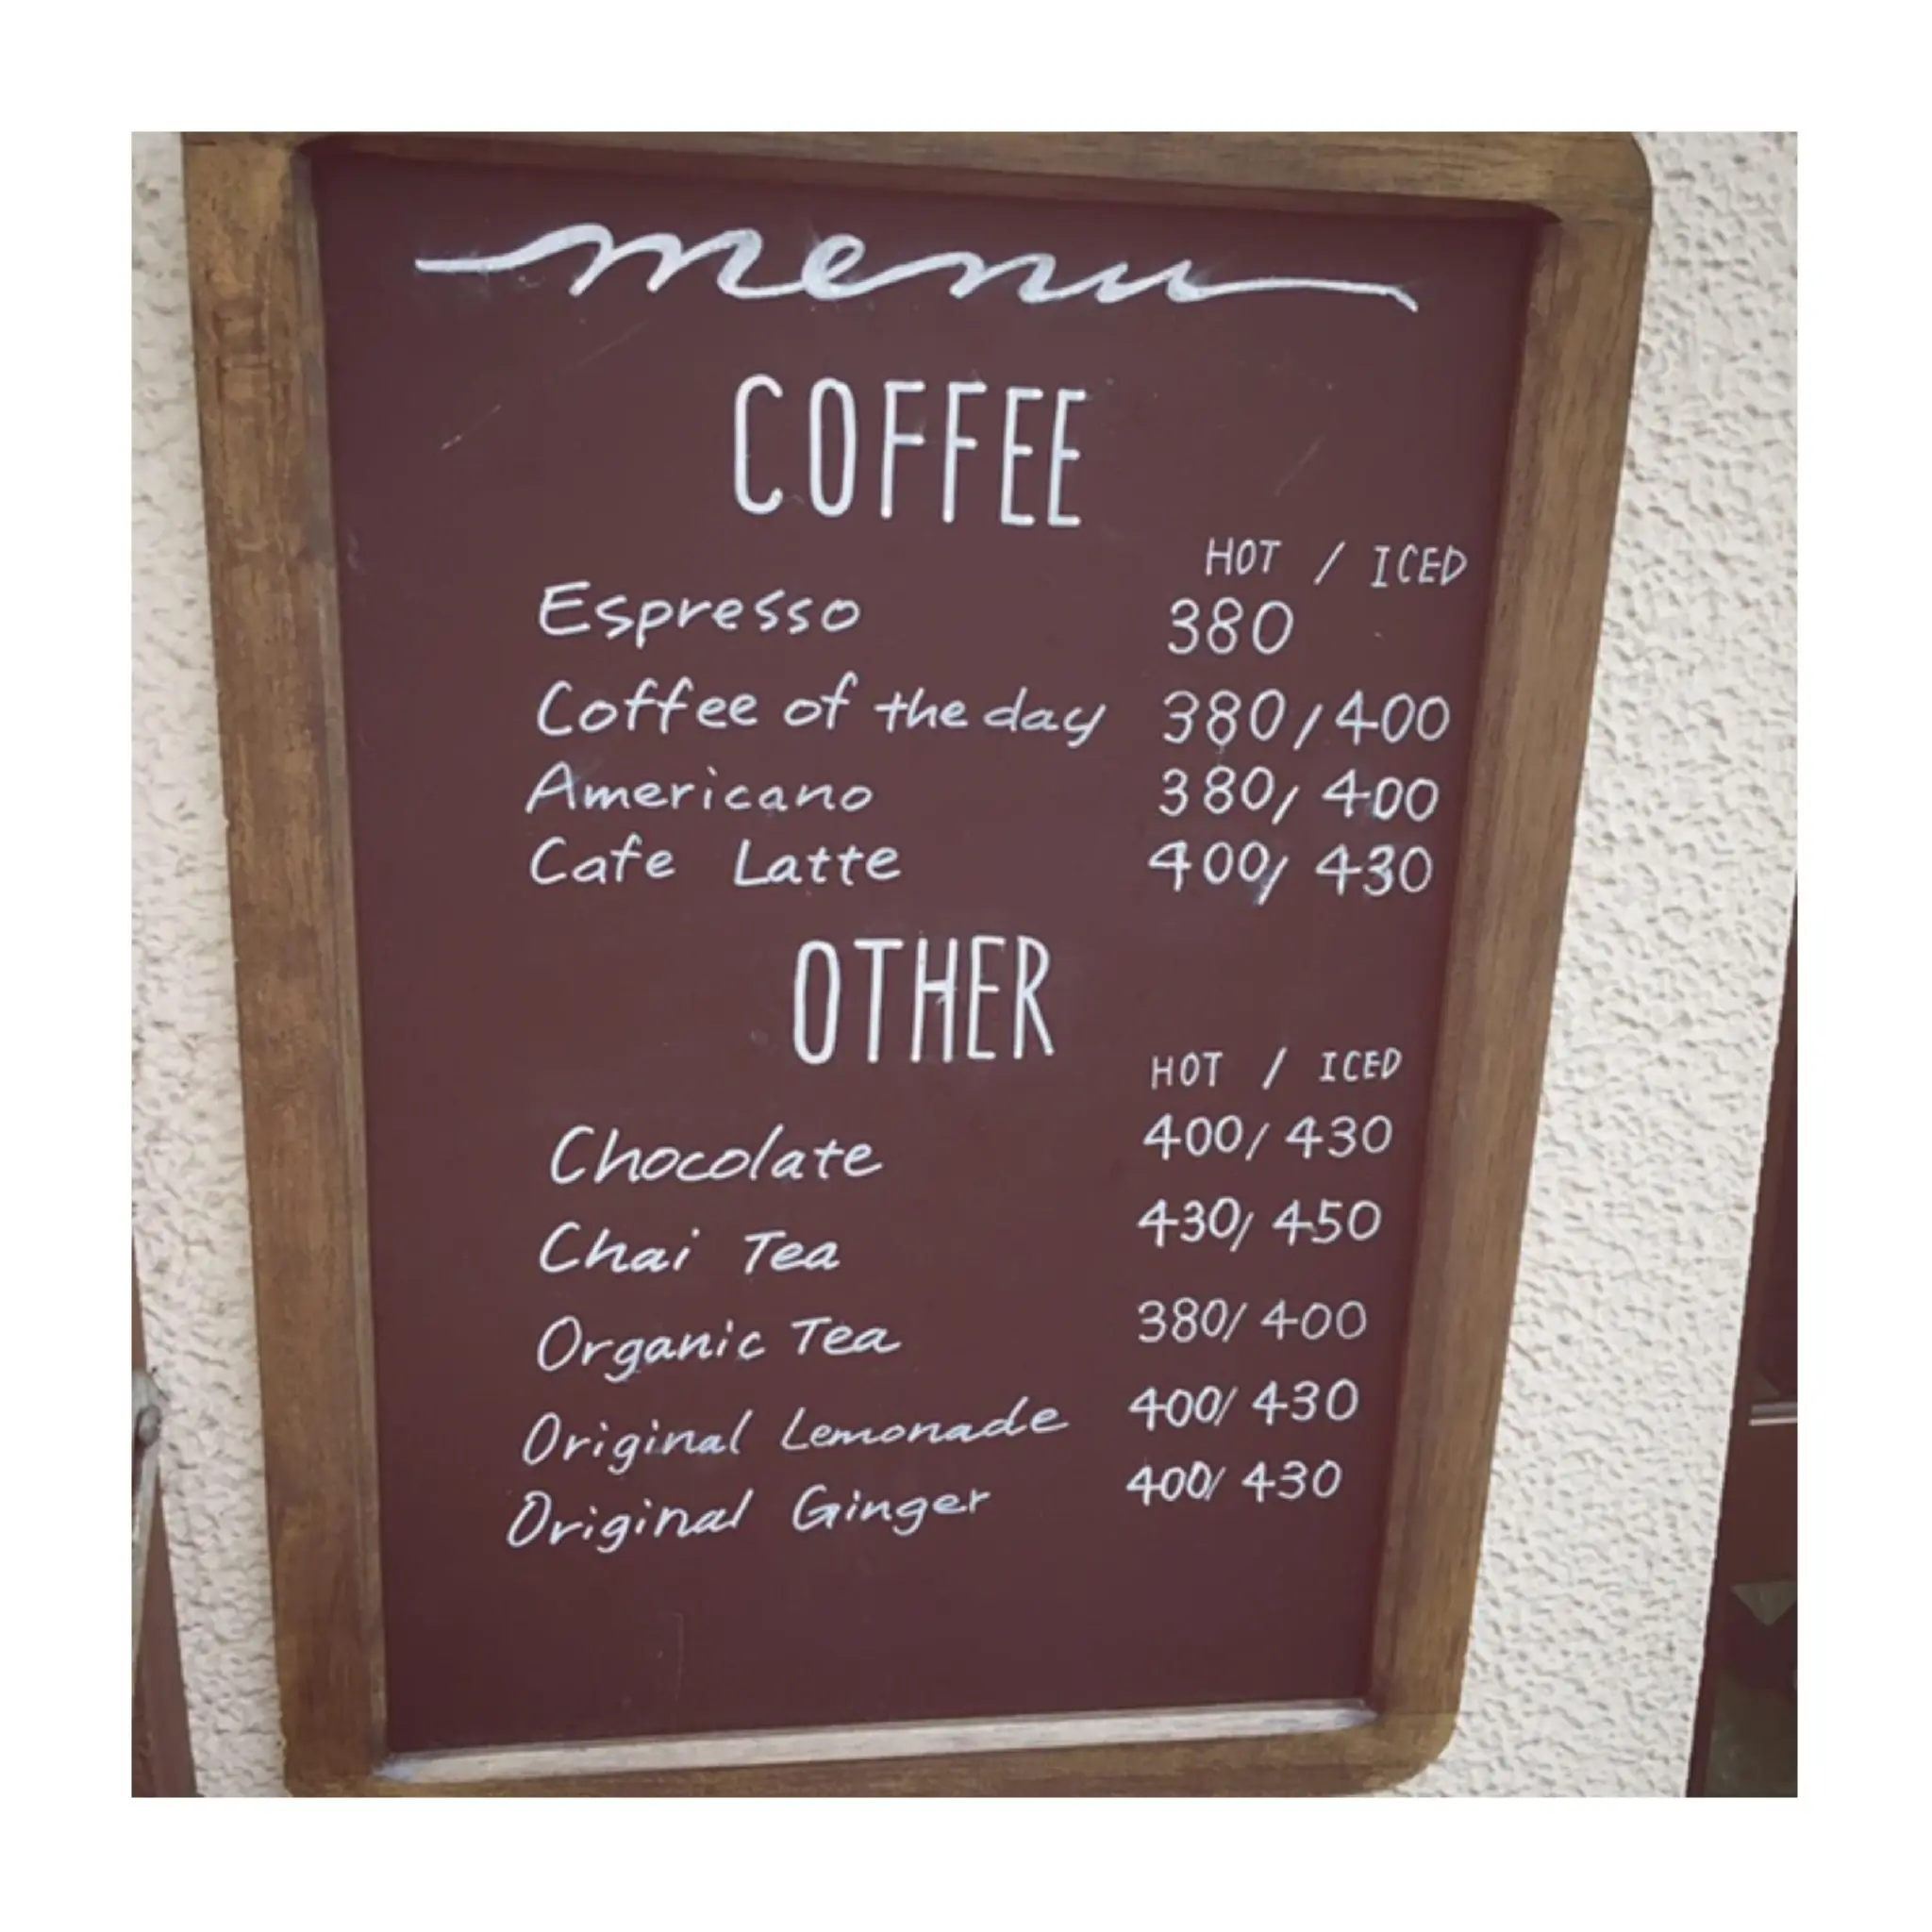 menu
COFFEE
HOT / ICED
Espresso 380
Coffee of the day 380/400
Americano 380/400
Cafe Latte 400/430
OTHER
HOT / ICED
Chocolate 400/430
Chai Tea 430/450
Organic Tea 380/400
Original Lemonade 400/430
Original Ginger 400/430